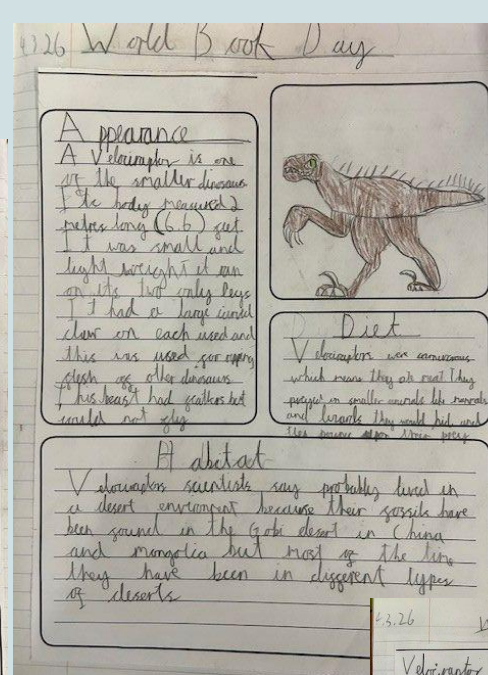 4.3.26 World Book Day
Appearance
A Velociraptor is one
of the smaller dinosaurs
Its body measured 2
metres long (6.6) feet
It was small and
light weight it ran
on its two only legs
It had a large curved
claw on each used and
this was used for ripping
flesh of other dinosaurs
This beast had feathers but
could not fly
Diet
Velociraptors were carnivorous
which means they ate meat They
preyed on smaller animals like mammals
and lizards they would hide and
then pounce upon their prey
Habitat
Velociraptors scientists say probably lived in
a desert environment because their fossils have
been found in the Gobi desert in China
and mongolia but most of the time
they have been in different types
of deserts
4.3.26
Velociraptor